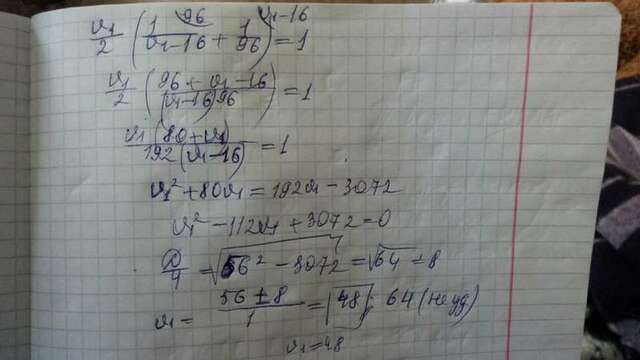 v₁/2 (1/(v₁-16) + 1/96) = 1
v₁/2 ((96 + v₁ - 16)/((v₁-16)96)) = 1
v₁(80+v₁)/192(v₁-16) = 1
v₁² + 80v₁ = 192v₁ - 3072
v₁² - 112v₁ + 3072 = 0
D/4 = √56² - 3072 = √64 = 8
v₁ = (56 ± 8)/1 = 48; 64 (не уд)
v₁ = 48